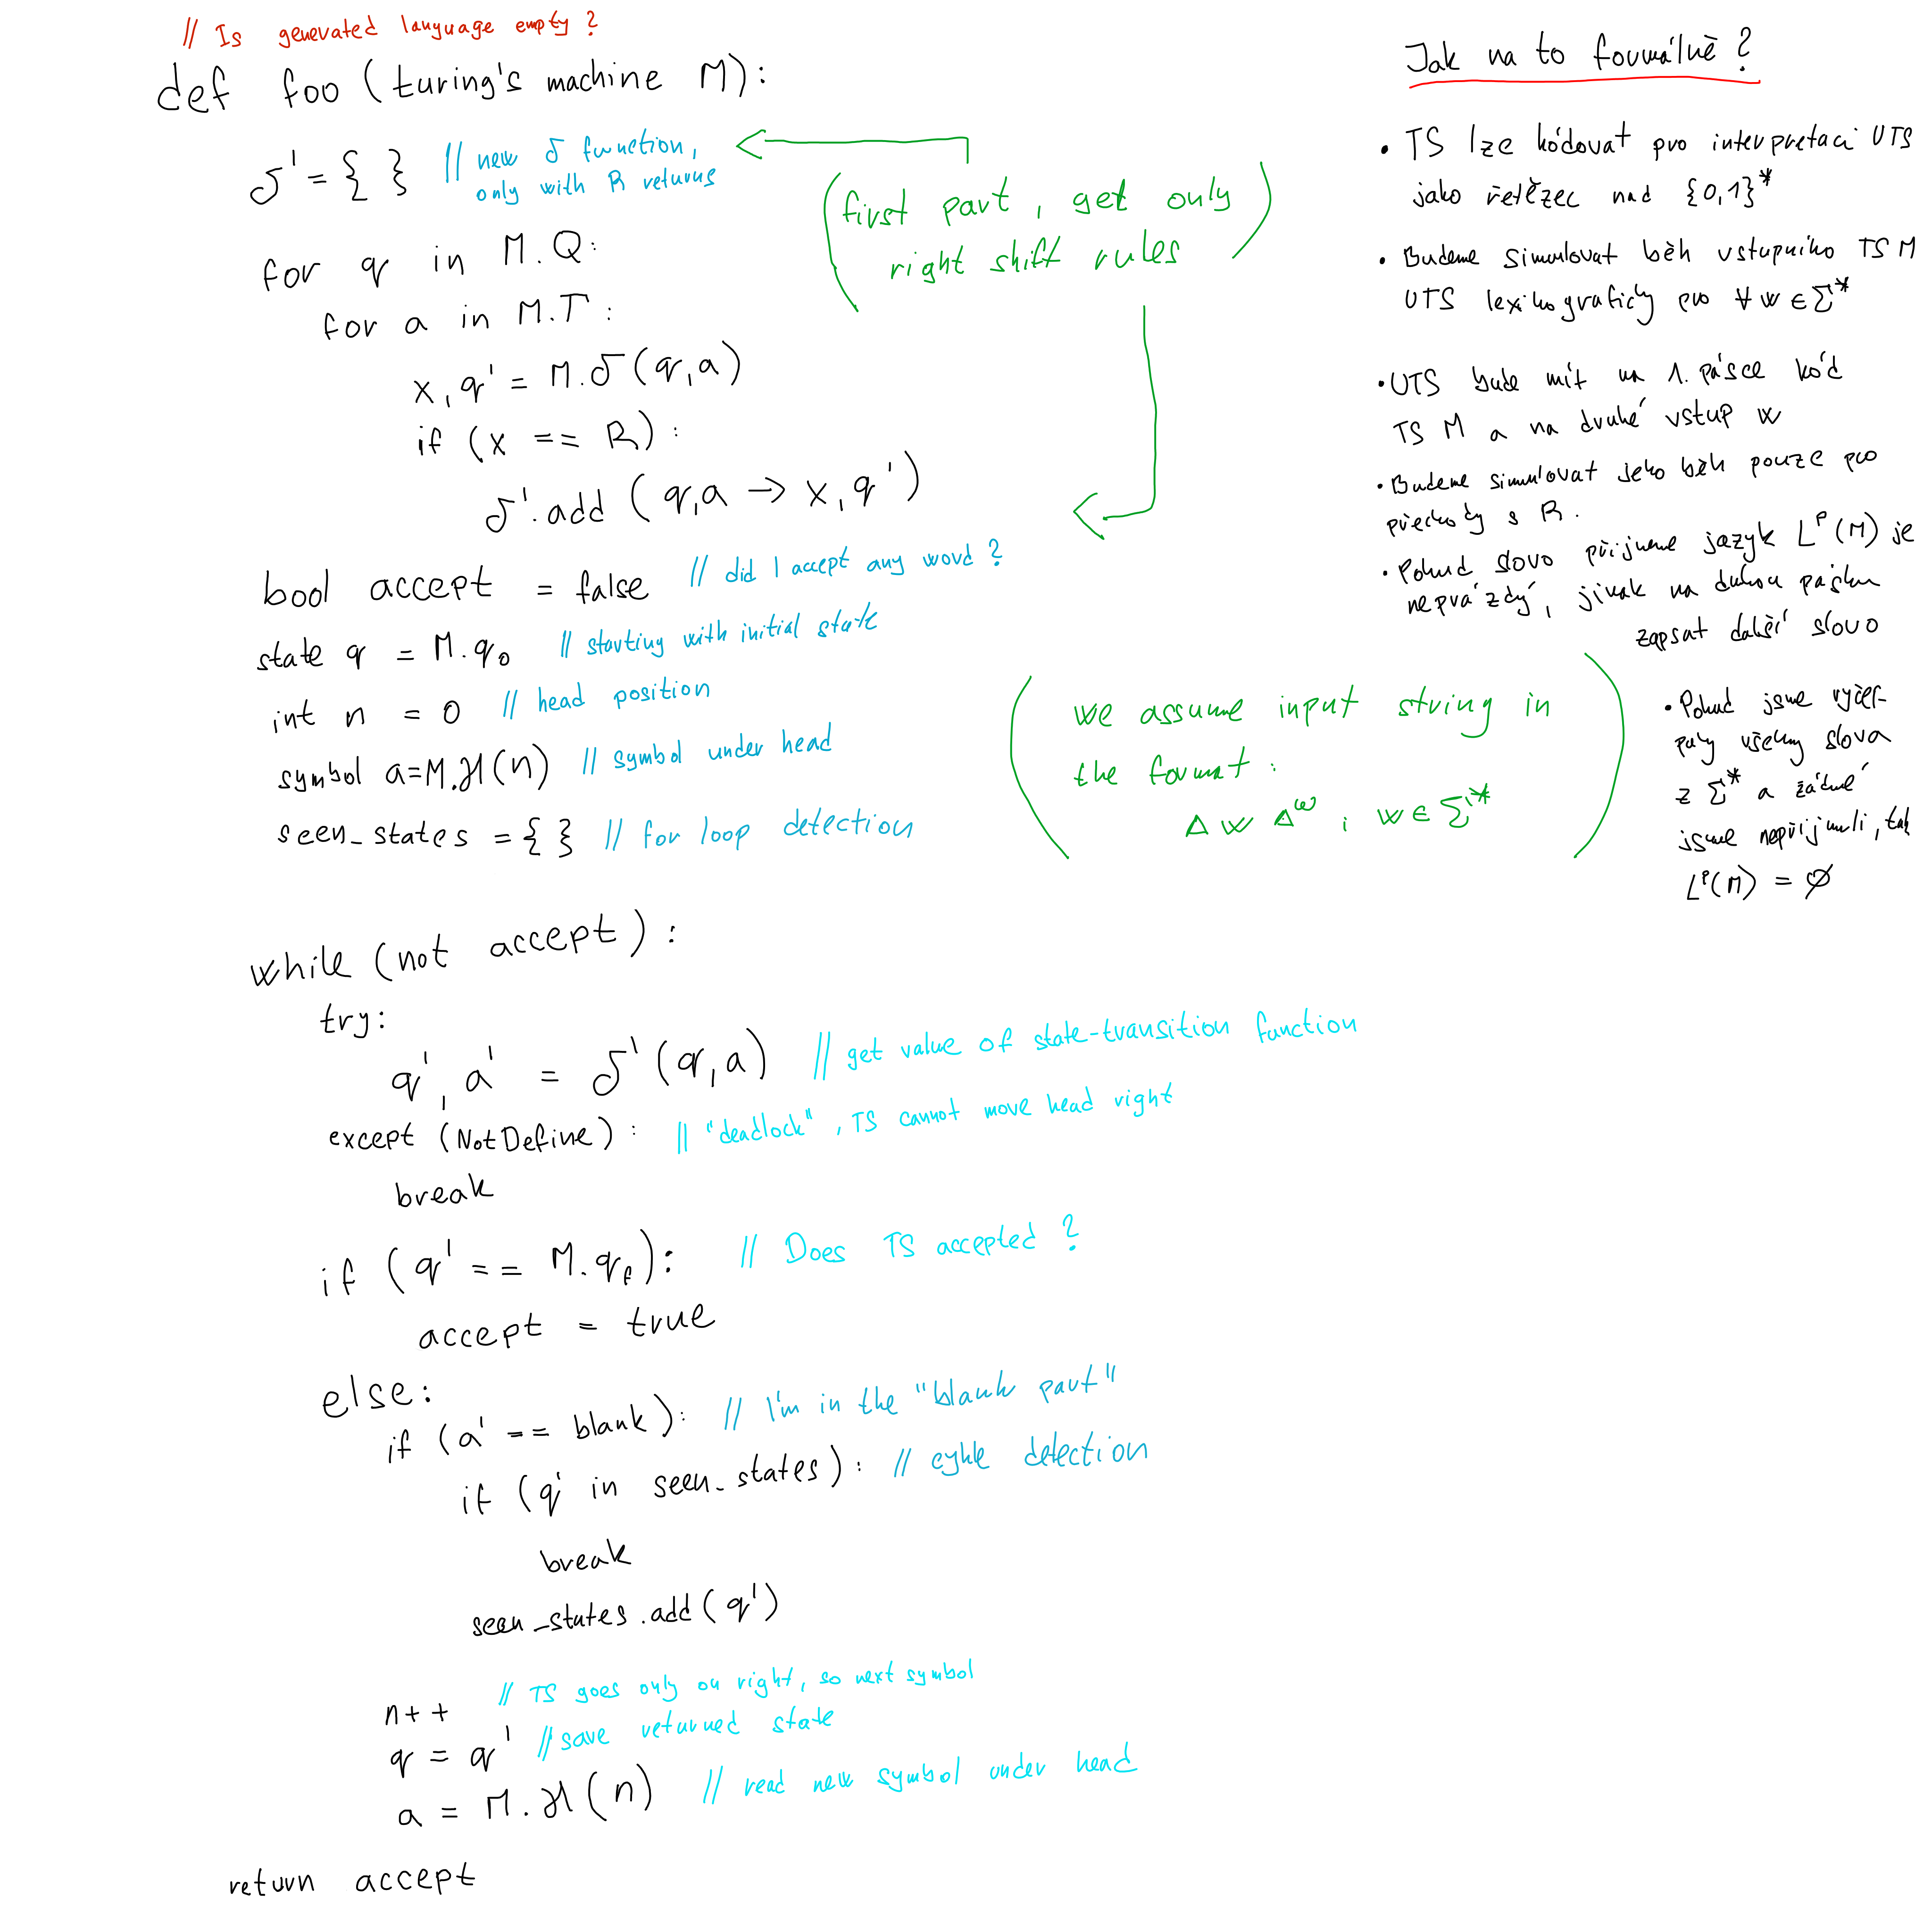 // Is generated language empty ?
def foo (turing's machine M):
δ' = { } // new δ function,
only with R returns
(first part, get only
right shift rules)
for q in M.Q:
for a in M.Γ:
x, q' = M.δ(q,a)
if (x == R):
δ'.add (q,a → x,q')
bool accept = false // did I accept any word ?
state q = M.q₀ // starting with initial state
int n = 0 // head position
symbol a=M.γ(n) // symbol under head
seen_states = { } // for loop detection
(we assume input string in
the format:
Δ w Δ^ω , w ∈ Σ*)
while (not accept):
try:
q', a' = δ'(q,a) // get value of state-transition function
except (NotDefine): // "deadlock", TS cannot move head right
break
if (q' == M.qf): // Does TS accepted ?
accept = true
else:
if (a' == blank): // I'm in the "blank part"
if (q' in seen_states): // cykle detection
break
seen_states.add(q')
n++ // TS goes only on right, so next symbol
q = q' // save returned state
a = M.γ(n) // read new symbol under head
return accept
Jak na to formálně ?
• TS lze kódovat pro interpretaci UTS
jako řetězec nad {0,1}*
• Budeme simulovat běh vstupního TS M
UTS lexikograficky pro ∀w∈Σ*
• UTS bude mít na 1. pásce kód
TS M a na druhé vstup w
• Budeme simulovat jeho běh pouze pro
přechody s R.
• Pokud slovo přijmeme jazyk L^P(M) je
neprázdý, jinak na druhou pásku
zapsat další slovo
• Pokud jsme vyčer-
paly všechny slova
z Σ* a žádné
jsme nepřijmuli, tak
L^P(M) = ∅